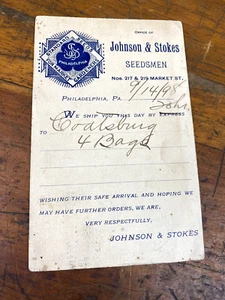 OFFICE OF
Johnson & Stokes
SEEDSMEN
Nos. 217 & 219 MARKET ST.
S&S
PHILADELPHIA
PHILADELPHIA, PA. 9/14/98
WE SHIP YOU THIS DAY BY EXPRESS
TO Coatsburg
4 Bags
WISHING THEIR SAFE ARRIVAL AND HOPING WE
MAY HAVE FURTHER ORDERS, WE ARE,
VERY RESPECTFULLY,
JOHNSON & STOKES